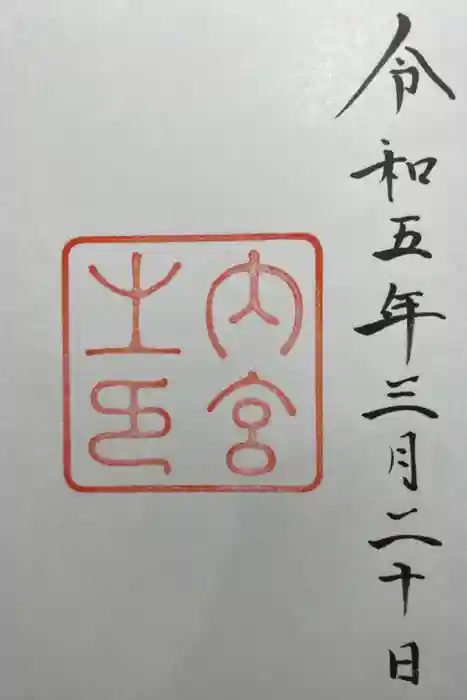 令和五年三月二十日
内宮
之印